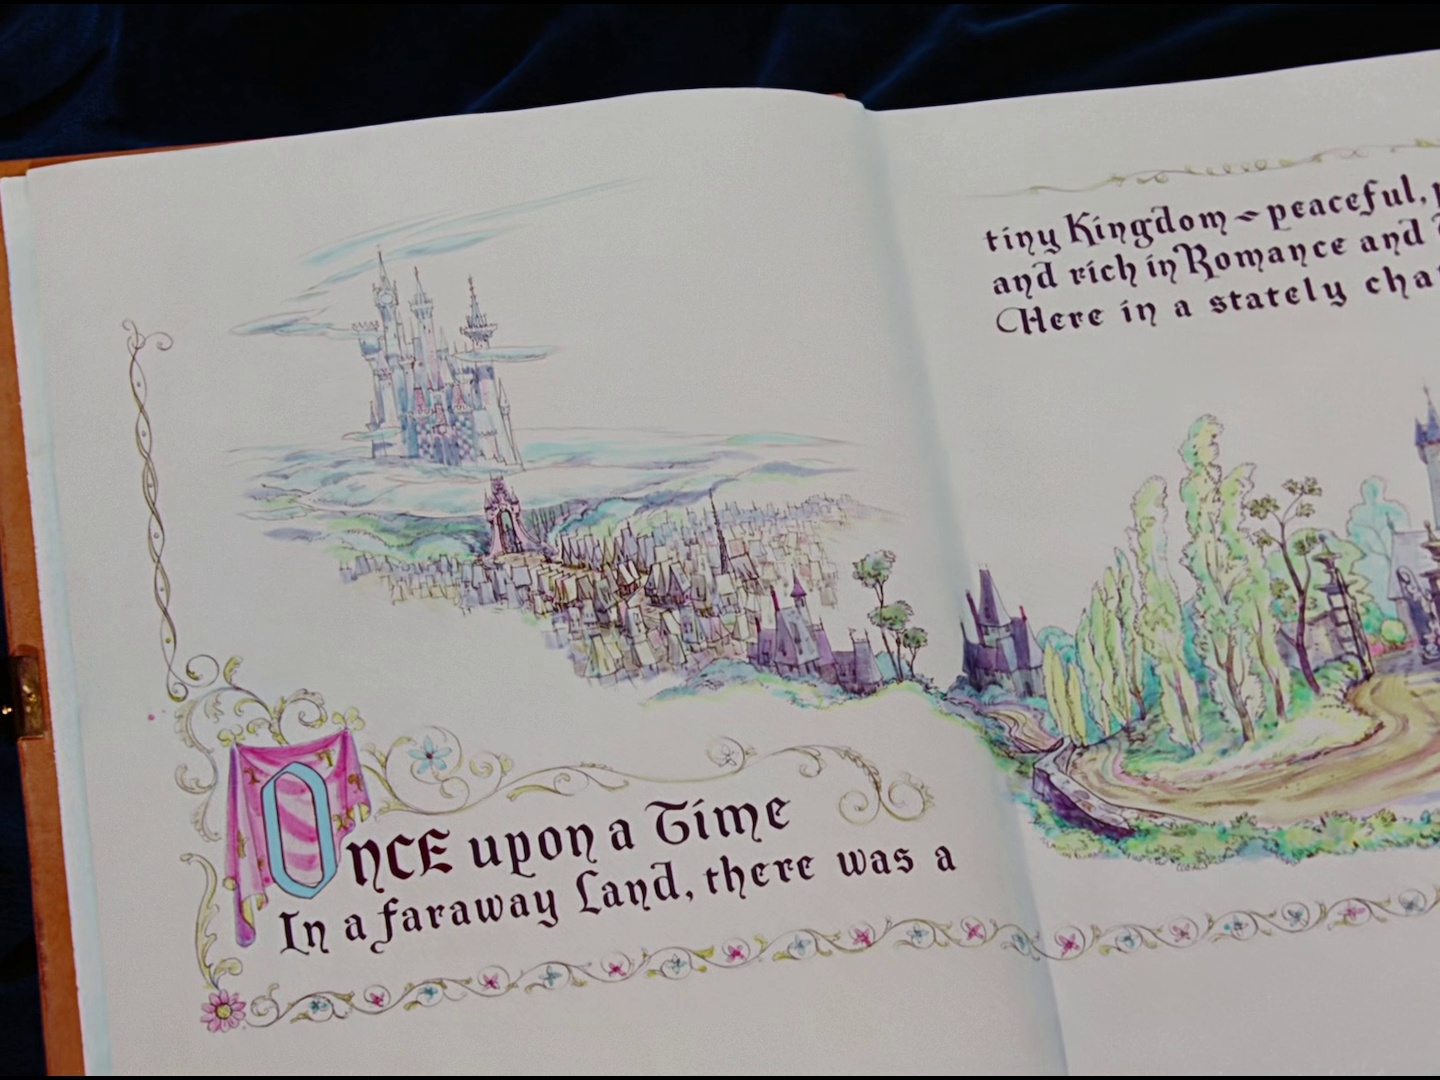 ONCE upon a Time
In a faraway Land, there was a
tiny Kingdom - peaceful,
and rich in Romance and
Here in a stately